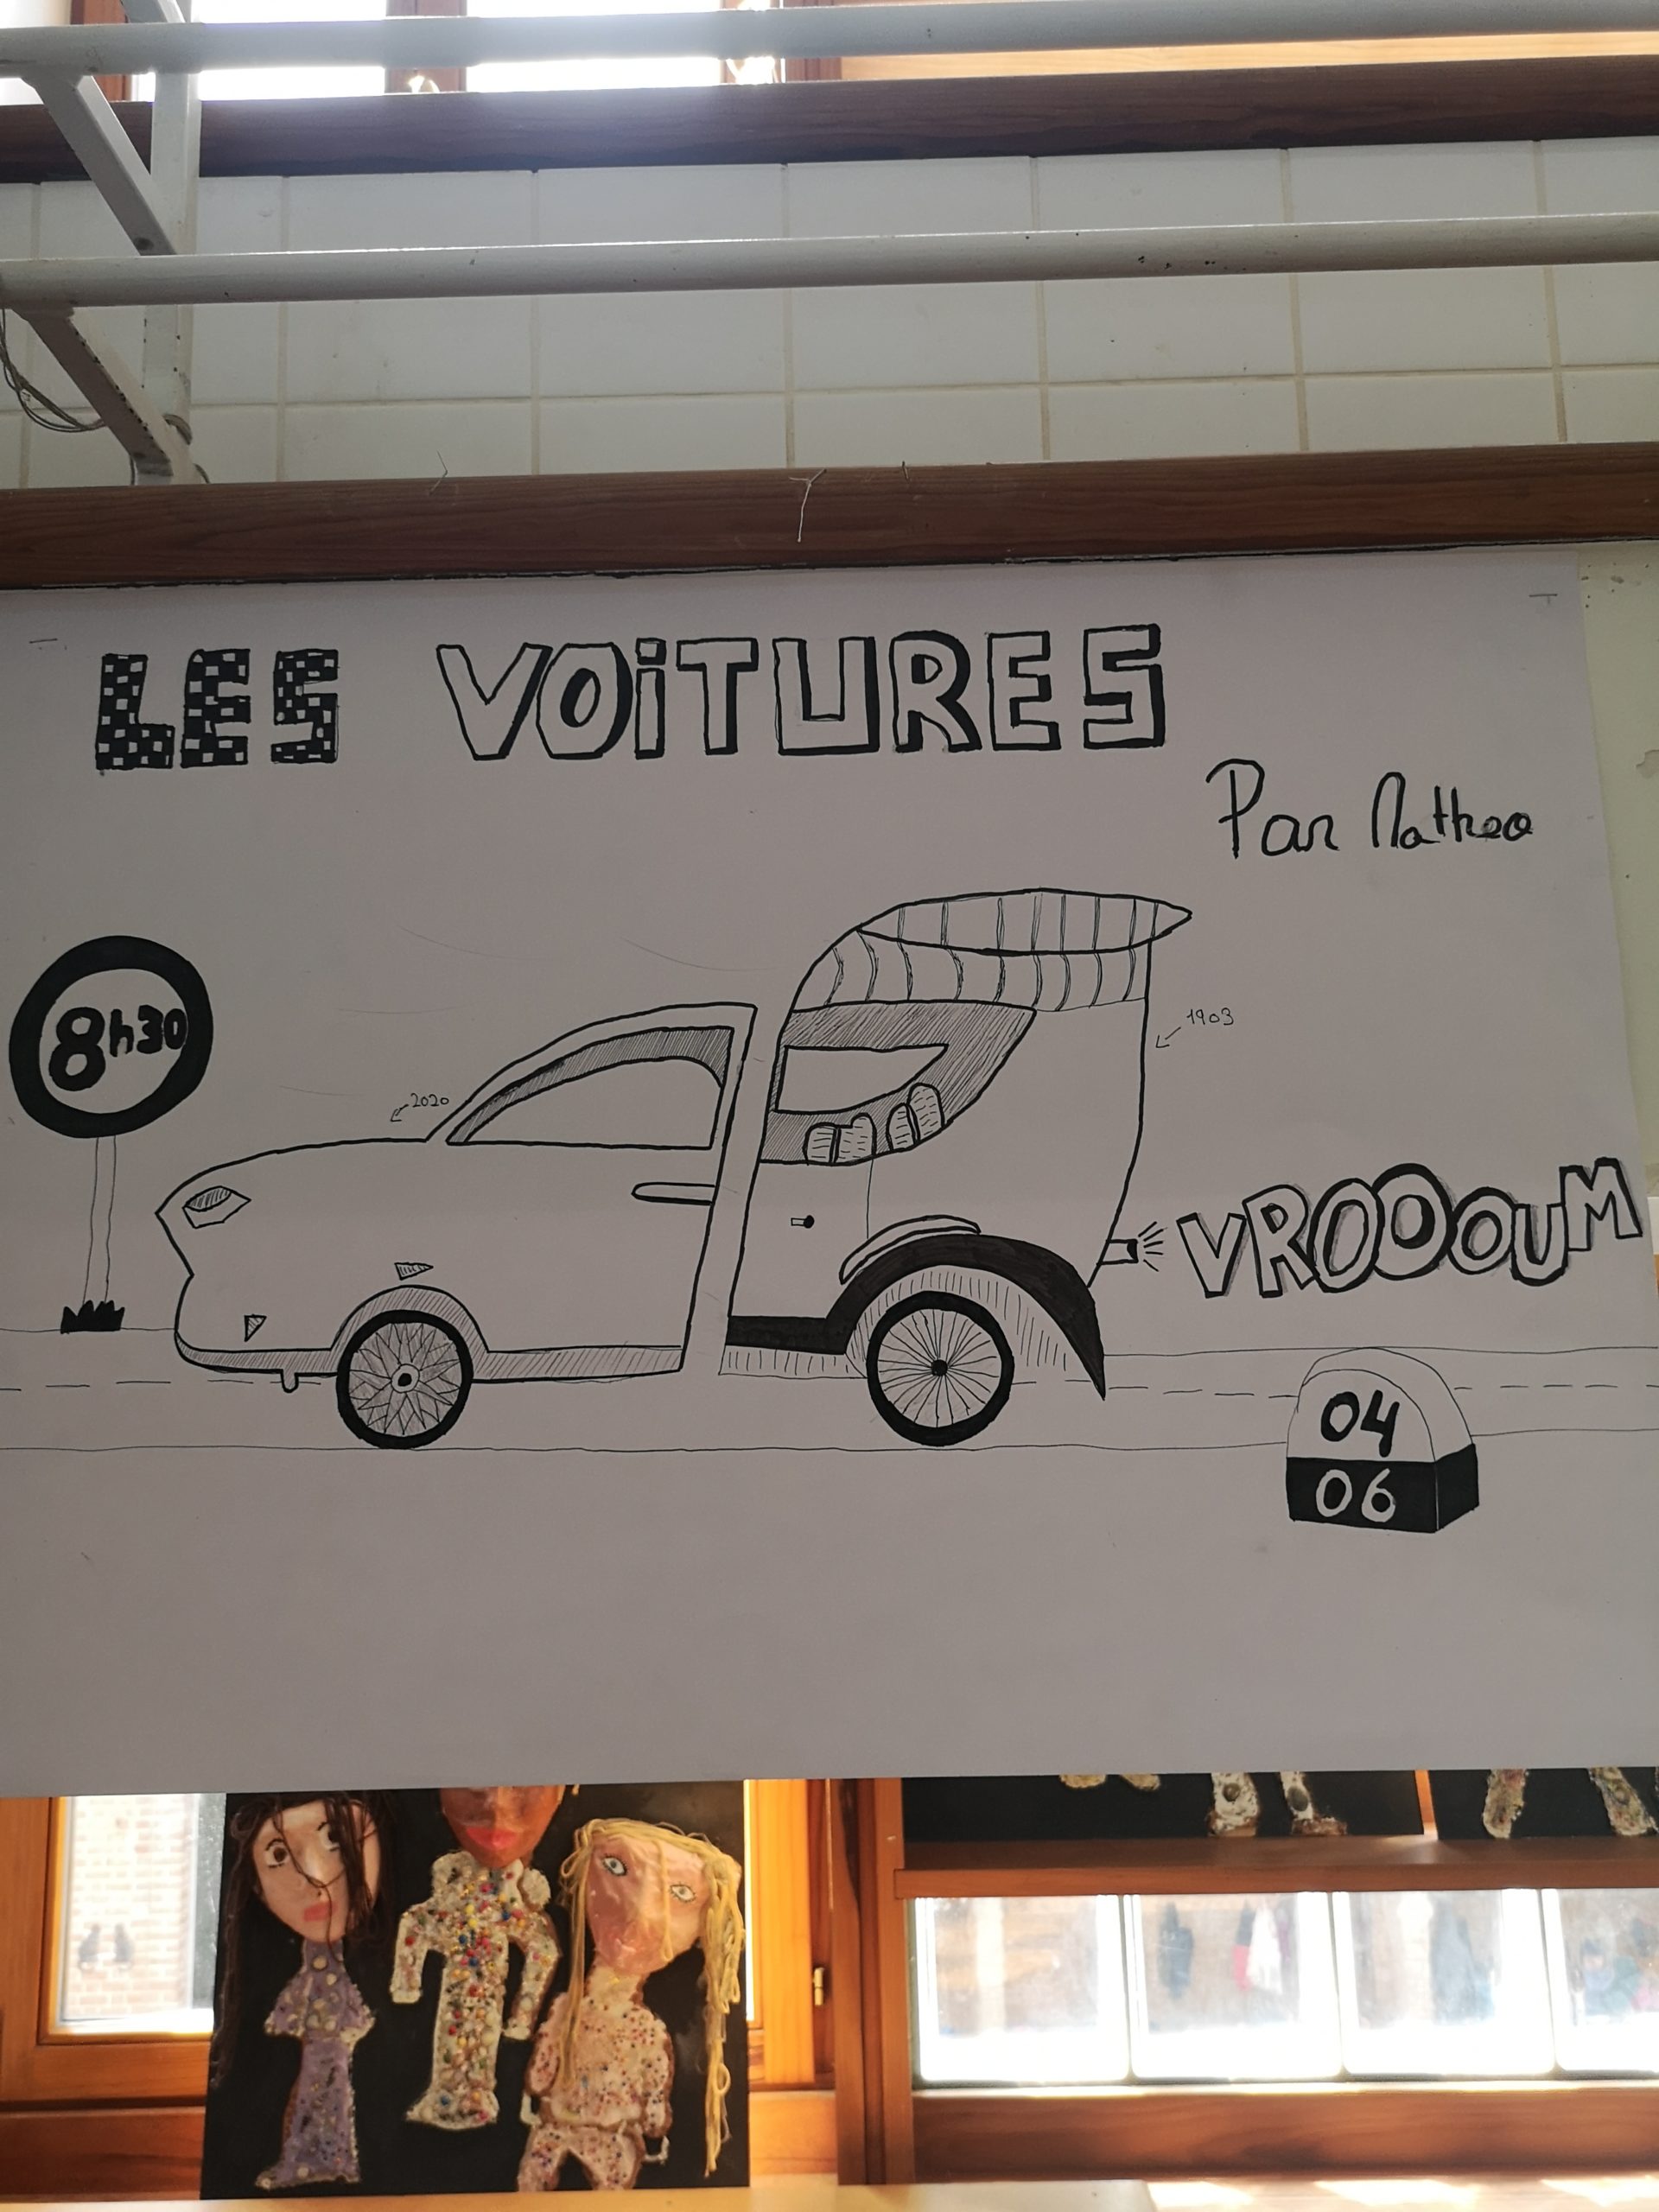 LES VOiTURES
Par Matheo
8h30
1903
2020
VROOOUM
04
06